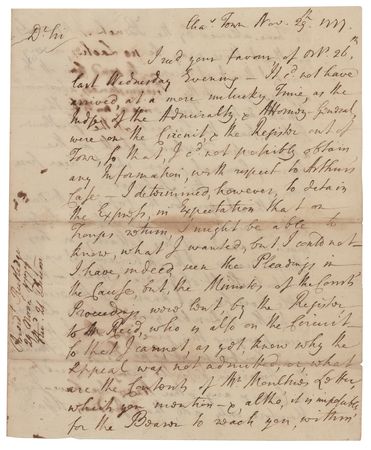 Cha.s Town Nov. 29.th 1777.
D.r Sir
I rec.d your favour of Oct. 26.th
last Wednesday Evening — It c.d not have
arrived at a more unlucky Time, as the
Judge of the Admiralty & Attorney-General
were on the Circuit, & the Register out of
Town, so that, I c.d not possibly obtain
any Information with respect to Arthur's
Case — I determined, however, to detain
the Express, in Expectation that on
return I might be able to
know, what I wanted, but I could not —
I have, indeed, seen the Pleadings in
the Cause, but, the Minutes of the Court's
Proceedings were lent, by the Register
to M.r Read, who is also on the Circuit —
so that I cannot, as yet, know why the
Appeal was not admitted, or, what
are the Contents of M.r Moultrie's Letter,
which you mention — &, altho, it is impossible
for the Bearer to reach you, within